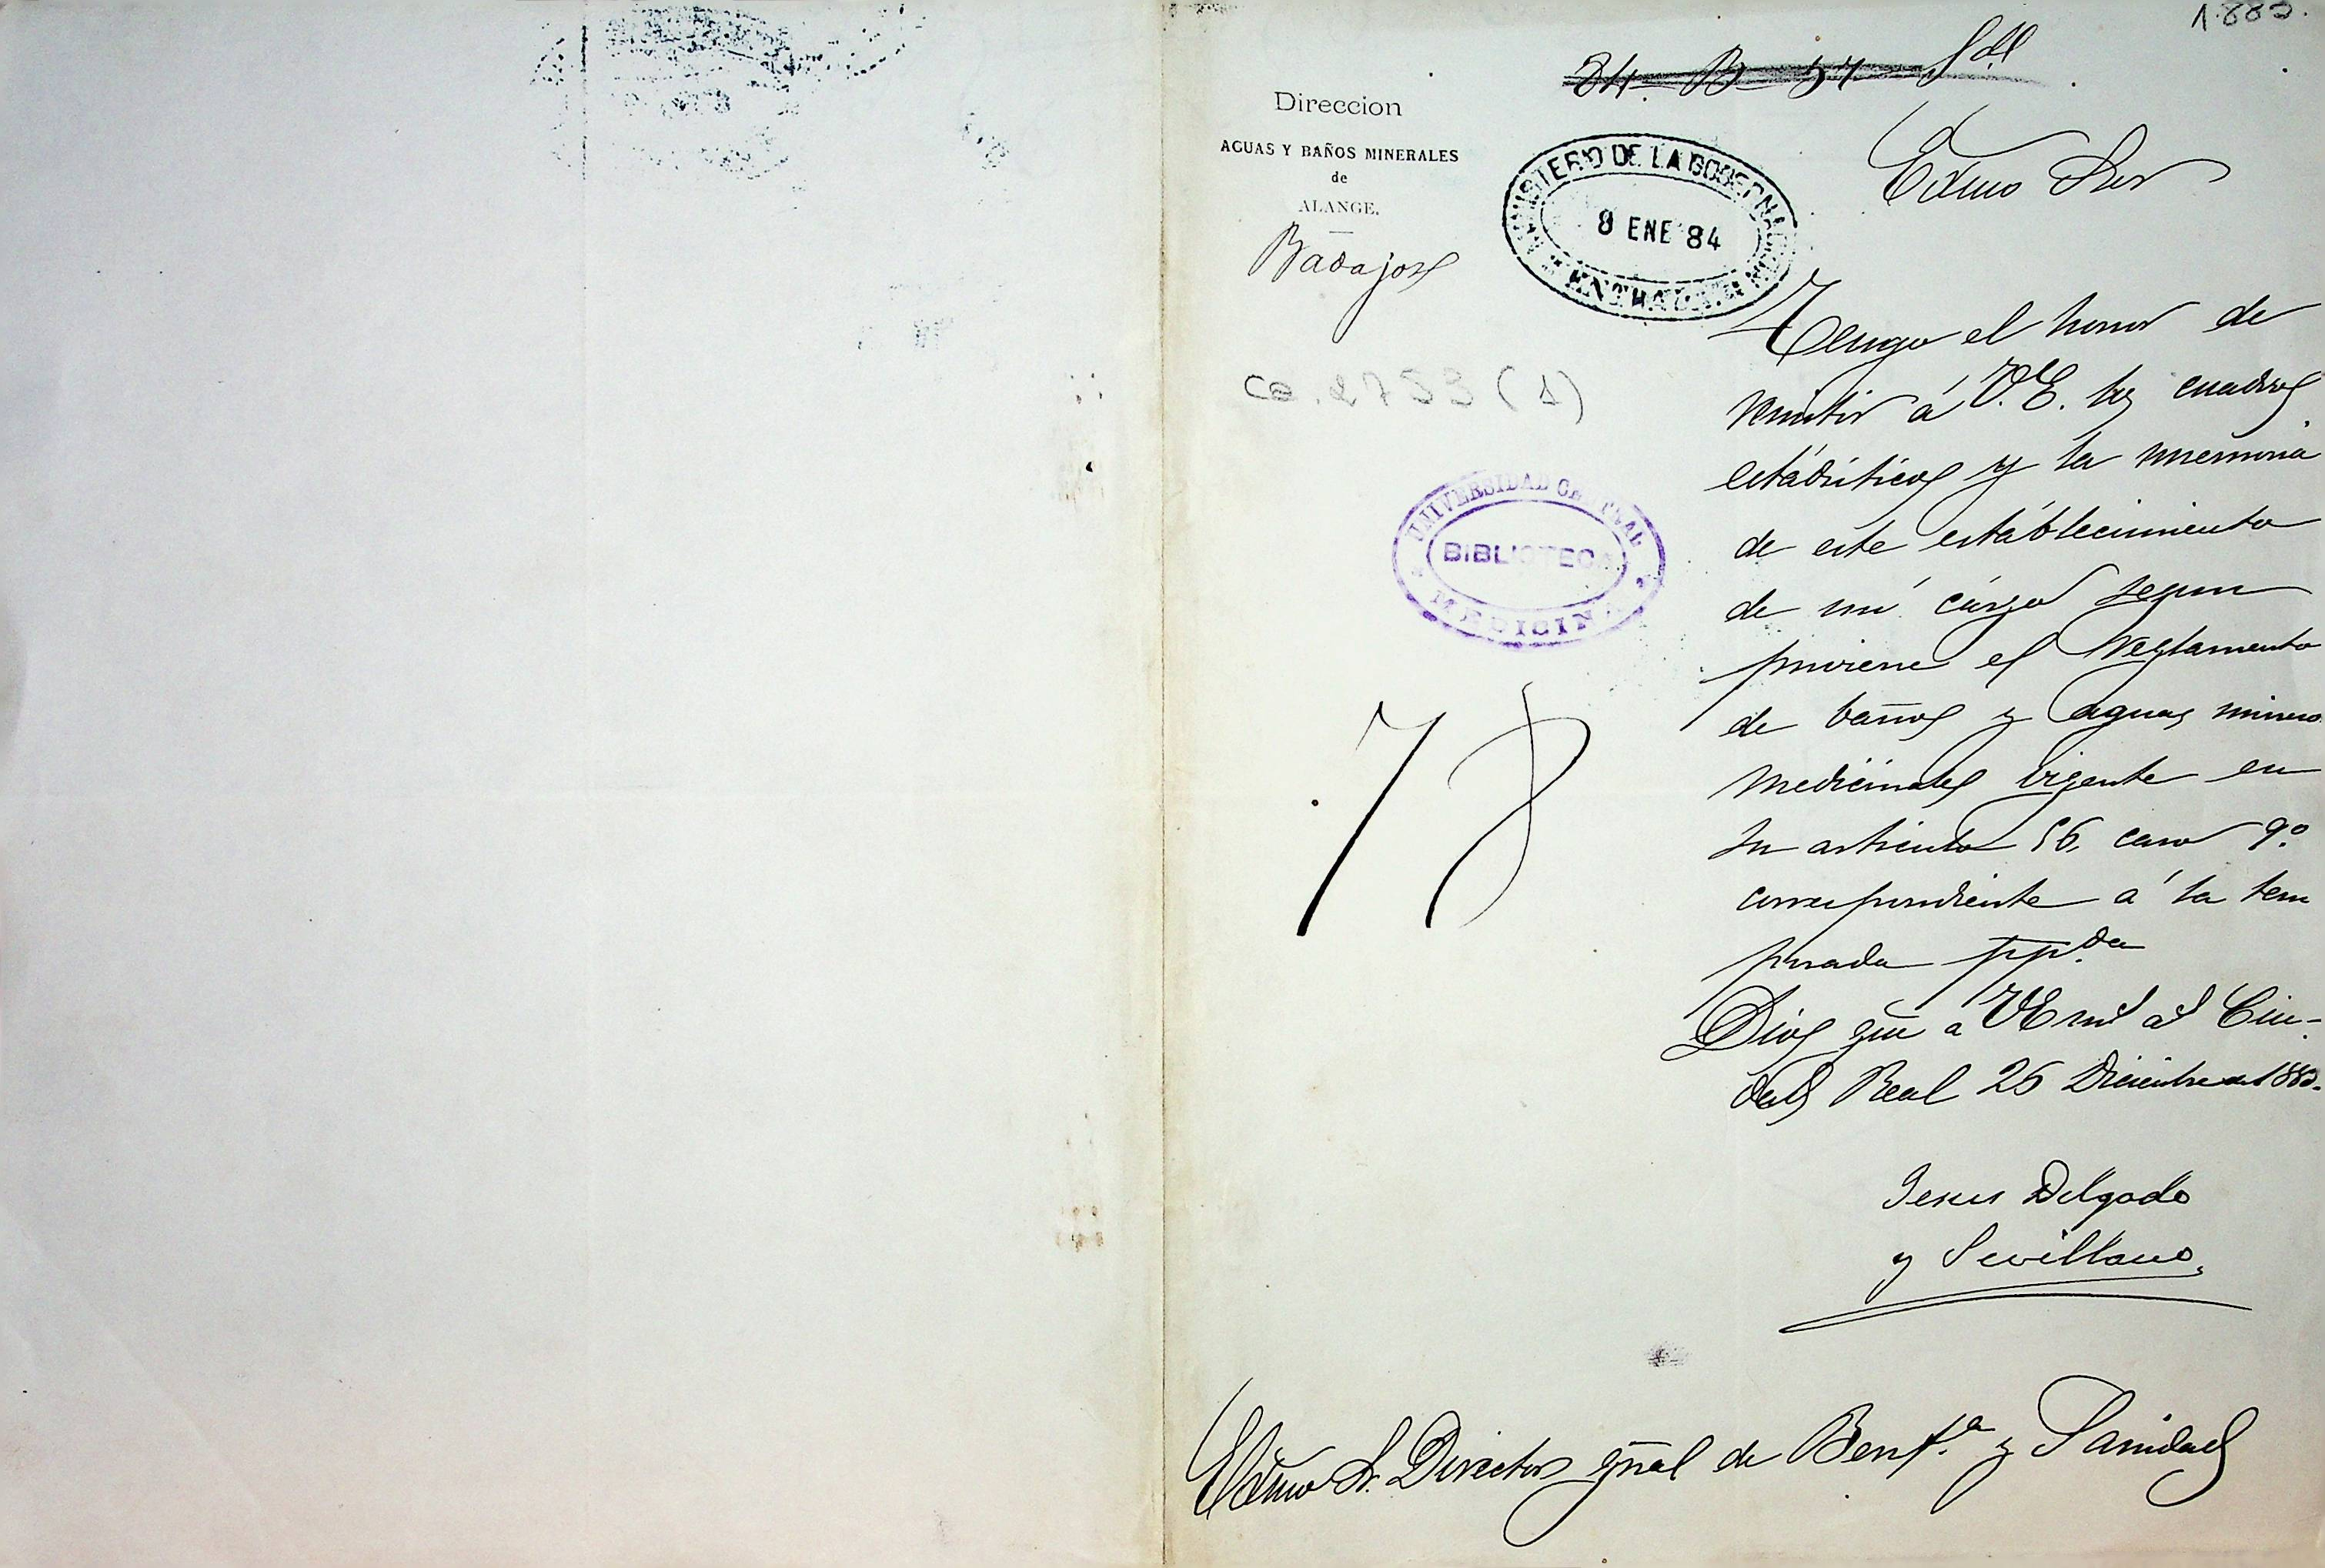 1.883.
Direccion
AGUAS Y BAÑOS MINERALES
de
ALANGE.
Badajoz
MINISTERIO DE LA GOBERNACION
8 ENE 84
ENTRADA
Exmo Sor
Ca. 2753 (1)
UNIVERSIDAD CENTRAL
BIBLIOTECA
MEDICINA
78
Tengo el honor de
remitir á V.E. los cuadros
estadisticos y la memoria
de este establecimiento
de mi cargo segun
previene el Reglamento
de baños y aguas minero
medicinales vigente en
su articulo 56, caso 9º.
correspondiente á la tem
porada pp.da
Dios gue á VE ms as Ciu-
dad Real 26 Diciembre de 1883.
Jesus Delgado
y Sevillano
Exmo Sr. Director gñal de Benf.a y Sanidad